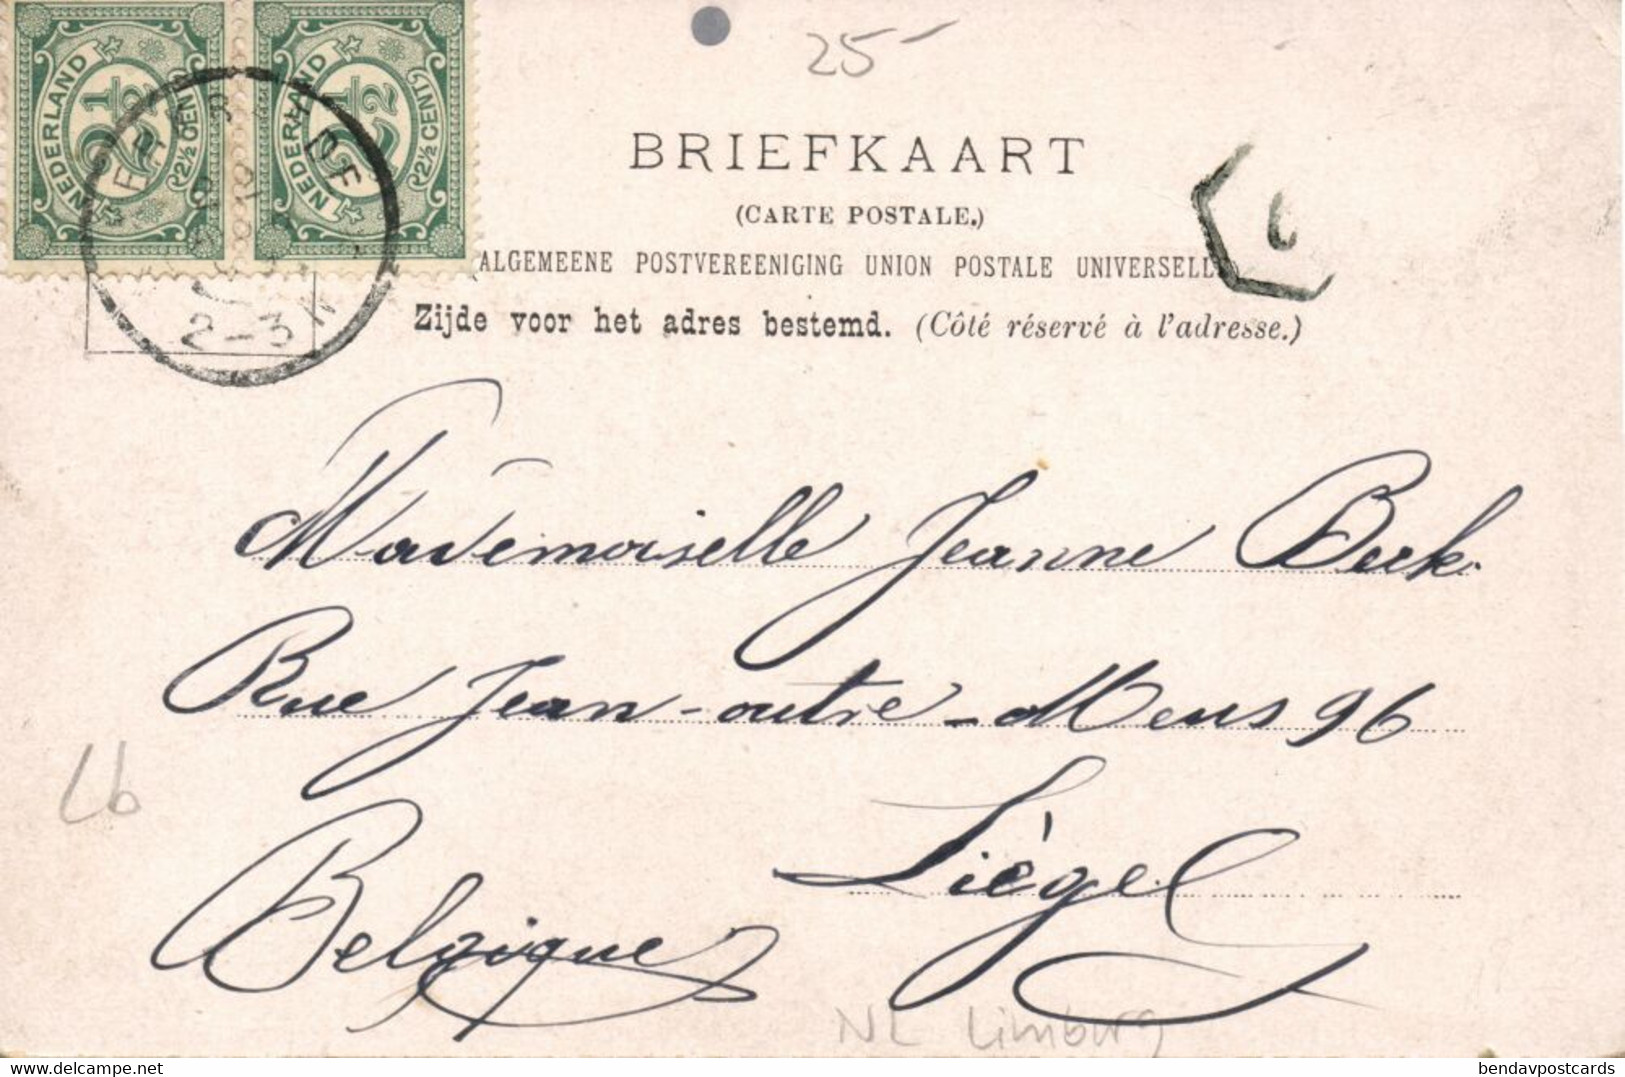 25-
NEDERLAND 2½ (2½ CENT)
NEDERLAND 2½ (2½ CENT)
2-3 N
BRIEFKAART
(CARTE POSTALE.)
ALGEMEENE POSTVEREENIGING UNION POSTALE UNIVERSELLE
Zijde voor het adres bestemd. (Côté réservé à l'adresse.)
Mademoiselle Jeanne Beek.
Rue Jean-outre-Meus 96
Lb
Liége
Belgique
NL Limburg
bendavpostcards